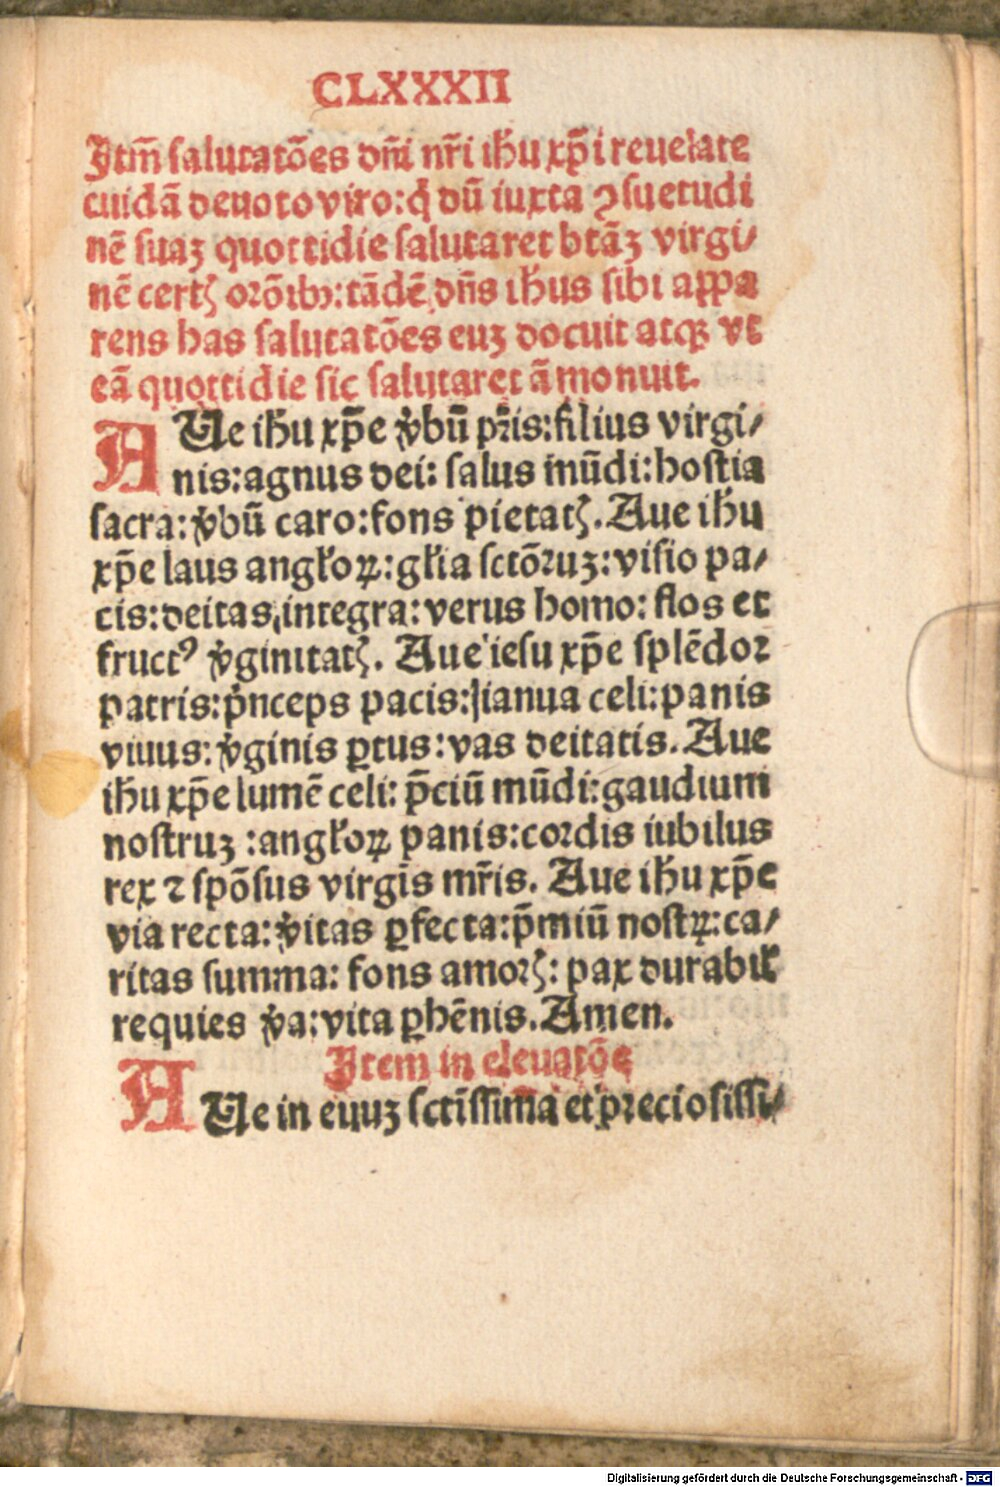 CLXXXII
Itm̄ salutatōes dn̄i nr̄i ih̄u xp̄i reuelate
cuidā deuoto viro: q̇ dū iuxta ꝯsuetudi
nē suaꝫ quottidie salutaret btāꝫ virgi/
nē certꝭ orōibꝫ: tādē dn̄s ih̄us sibi appa
rens has salutatōes euꝫ docuit atqꝫ vt
eā quottidie sic salutaret āmonuit.
AUe ih̄u xp̄e v̇bū pr̄is: filius virgi/
nis: agnus dei: salus mūdi: hostia
sacra: v̇bū caro: fons pietatꝭ. Aue ih̄u
xp̄e laus angl̄oꝝ: gl̄ia sctōꝛuꝫ: visio pa/
cis: deitas integra: verus homo: flos et
fructꝰ v̇ginitatꝭ. Aue iesu xp̄e splēdoꝛ
patris: ṗnceps pacis: ianua celi: panis
viuus: v̇ginis ꝑtus: vas deitatis. Aue
ih̄u xp̄e lumē celi: p̄ciū mūdi: gaudium
nostruꝫ: angl̄oꝝ panis: coꝛdis iubilus
rex ⁊ spōsus virgīs mr̄is. Aue ih̄u xp̄e
via recta: v̇itas ꝑfecta: p̄miū nostꝝ: ca/
ritas summa: fons amoꝛꝭ: pax durabil̄
requies v̇a: vita ꝑhēnis. Amen.
Item in eleuatōe
AUe in euuꝫ sctīssima et preciosissi/
Digitalisierung gefördert durch die Deutsche Forschungsgemeinschaft - DFG